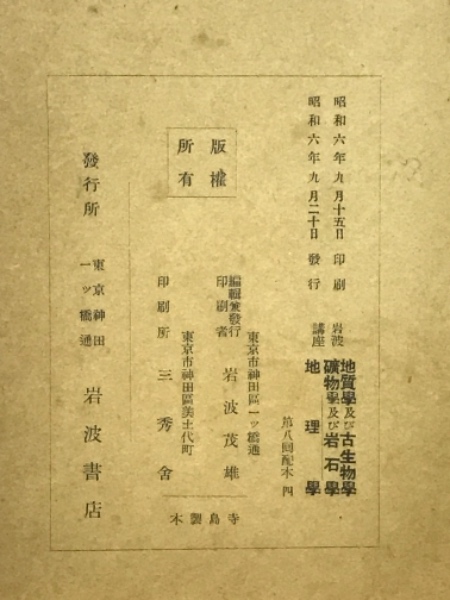 昭和六年九月十五日 印刷
昭和六年九月二十日 發行
岩波講座
地質學及び古生物學
礦物學及び岩石學
地理學
第八囘配本 四
版權所有
東京市神田區一ツ橋通
編輯兼發行印刷者 岩波茂雄
東京市神田區美土代町
印刷所 三秀舍
寺島製本
發行所
東京神田一ツ橋通
岩波書店